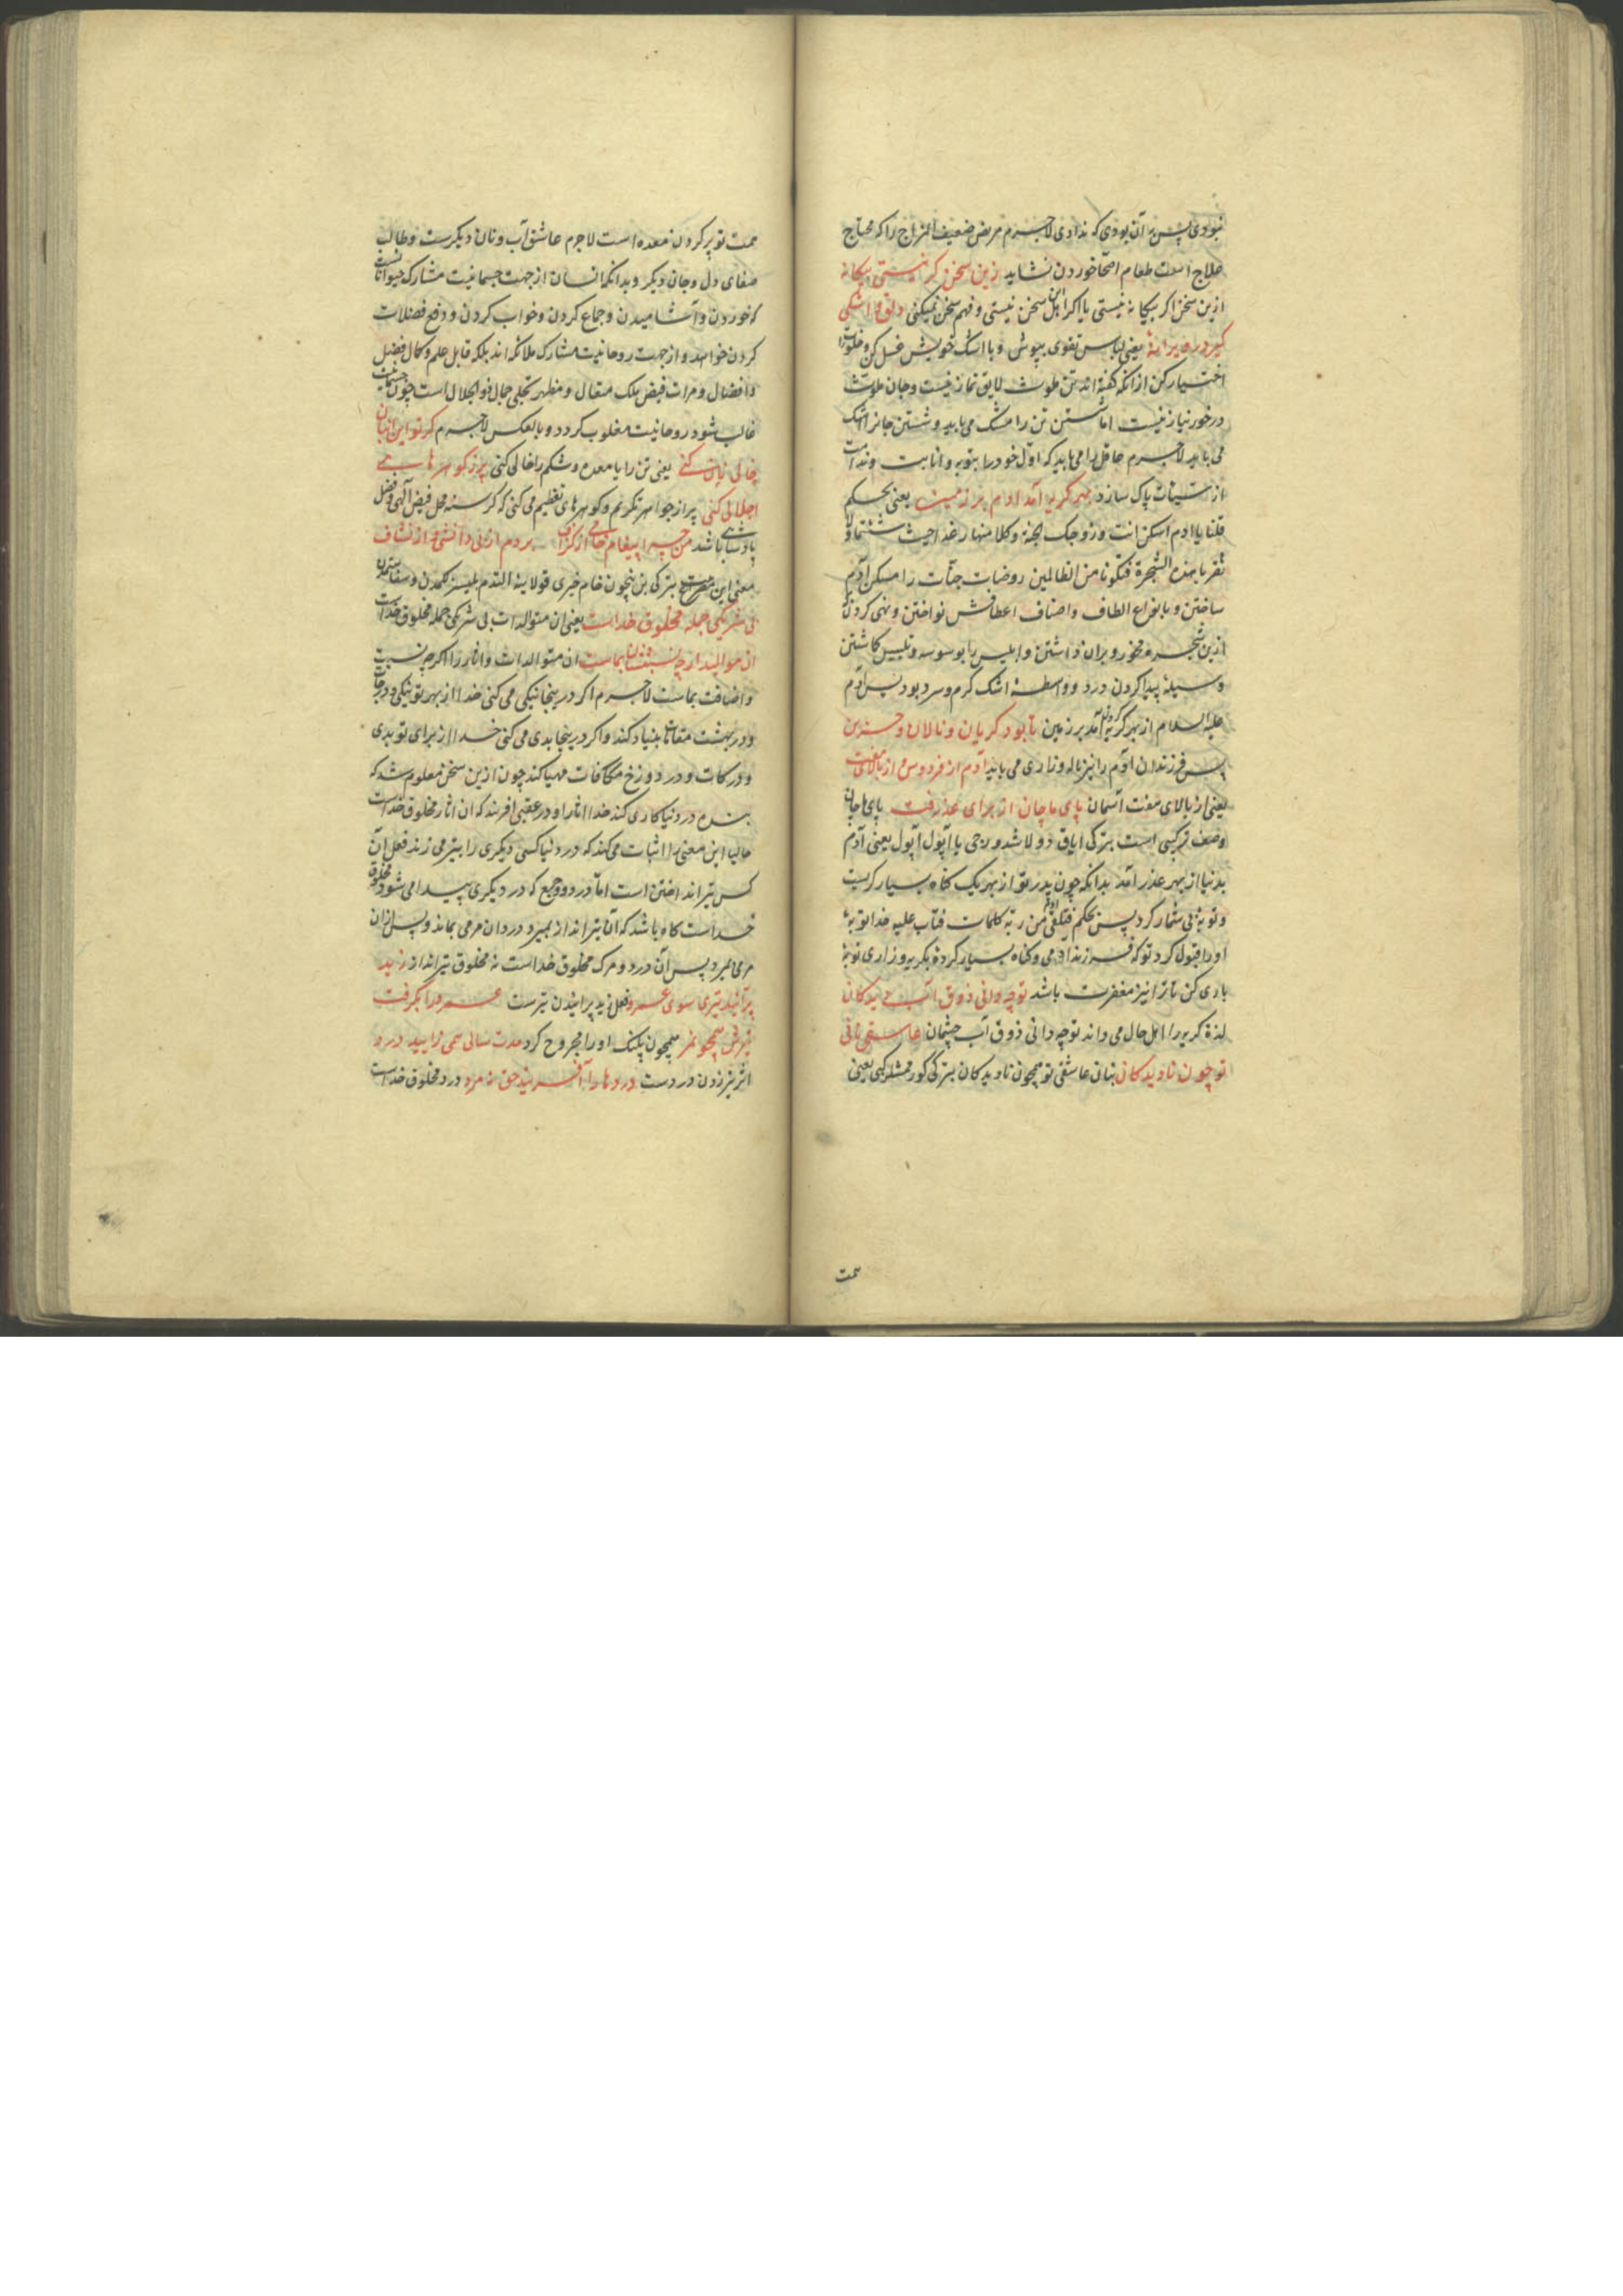 نبودی پس به آن بودی که ندادی لاجرم مریض ضعیف المزاج را که محتاج
علاج است طعام اصحا خوردن نشاید زین سخن گر نیستی بیکانه
ازین سخن اکر بیکانه نیستی یا اکر اهل این سخن نیستی و فهم سخن میکنی دلق و اشکی
کیر در ویرانهٔ یعنی لباس تقوی بپوش و با اشک خویش غسل کن و خلوت را
اختیار کن ازانکه کفته اند تن ملوث لایق نماز نیست و جان ملوث
درخور نیاز نیست اما شستن تن را مشک می باید و شستن جانرا اشک
می باید لاجرم عاقل را می باید که اول خود را بتوبه و انابت و ندامت
از سیئات پاک سازد بهر کریه آمد ادم بر زمین یعنی بحکم
قلنا یا ادم اسکن انت و زوجک الجنة و کلا منها رغدا حیث شئتما و لا
تقربا هذه الشجرة فتکونا من الظالمین روضات جنّات را مسکن آدم
ساختن و بانواع الطاف و اصناف اعطافش نواختن و نهی کردن
ازین شجره و محذور بران داشتن و ابلیس را بوسوسه و تلبیس کاشتن
وسیلهٔ پیدا کردن درد و واسطهٔ اشک کرم و سرد بود پس آدم
علیه السلام از بهر کریه کردن آمد بر زمین تا بود کریان و نالان و حزین
پس فرزندان آدم را نیز ناله و زاری می باید آدم از فردوس و از بالای هفت
یعنی از بالای هفت آسمان پای ماچان از برای عذر رفت پای ماچان
وصف ترکیبی است بترکی ایاق دولاشدورجی یا آپول آپول یعنی آدم
بدنیا از بهر عذر آمد بدانکه چون پدر تو از بهر یک کناه بسیار کریست
و توبهٔ بی شمار کرد پس بحکم فتلقی آدم من ربه کلمات فتاب علیه خدا توبهٔ
او را قبول کرد تو که فرزند ادمی و کناه بسیار کردهٔ بکریه و زاری توبهٔ
باری کن تا ترا نیز مغفرت باشد تو چه دانی ذوق آب دیدکان
لذة کریه را اهل حال می داند تو چه دانی ذوق آب چشمان عاشق نانی
تو چون نادیدکان بنان عاشقی تو همچون نادیدکان بترکی کورممشلر کبی یعنی
همت
همت تو پر کردن معده است لاجرم عاشق آب و نان دیکرست و طالب
صفای دل و جان دیکر و بدانکه انسان از جهت جسمانیت مشارک حیواناتست
که خوردن و آشامیدن و جماع کردن و خواب کردن و دفع فضلات
کردن خواهد و از جهت روحانیت مشارک ملائکه اند بلکه قابل علم و کمال فضل
و افضال و مرات فیض ملک متعال و مظهر تجلی جمال ذو الجلال است چون جسمانیت
غالب شود روحانیت مغلوب کردد و بالعکس لاجرم کر تو این انبان
خالی زنان کنی یعنی تن را یا معده و شکم را خالی کنی پر ز کوهرهای
اجلالی کنی پر از جواهر تکریم و کوهرهای تعظیم می کنی که کرسنه محل فیض الهی و فضل
پادشاهی باشد من چرا پیغام خامی از کزاف بردم از بی دانشی و از نشاف
معنی این مصرع بترکی بن نیچون خام خبری قولاینه التدم بلیسزلکمدن و سفاهتمدن
بی شریکی جمله مخلوق خداست یعنی ان متوالدات بی شریکی جمله مخلوق خداست
آن موالید ارچه نسبتشان بماست ان متوالدات و اثار را اکرچه نسبت
و اضافت بماست لاجرم اکر در ینجا نیکی می کنی خدا از بهر تو نیکی و درجات
و در بهشت مقامات بنیاد کند و اکر درینجا بدی می کنی خدا از برای تو بدی
و درکات و در دوزخ مکافات مهیا کند چون ازین سخن معلوم شد که
بنده در دنیا کاری کند خدا اثار او در عقبی افریند که ان اثار مخلوق خداست
حالیا این معنی را اثبات می کند که در دنیا کسی دیکری را بتیر می زند فعل آن
کس تیر انداختن است اما درد و وجع که در دیکری پیدا می شود مخلوق
خداست کاه باشد که آن تیرانداز بمیرد و دردان مرمی بماند و پس ازان
مرمی بمیرد پس آن درد و مرک مخلوق خداست نه مخلوق تیرانداز زید
پرانید تیری سوی عمرو فعل زید پرانیدن تیرست عمرو را بکرفت
تیرش همچو نمر همچون پلنک او را مجروح کرد مدت سالی همی زایید درد
اثر تیر زدن دردست دردها را آفریند حق نه مرد درد مخلوق خداست